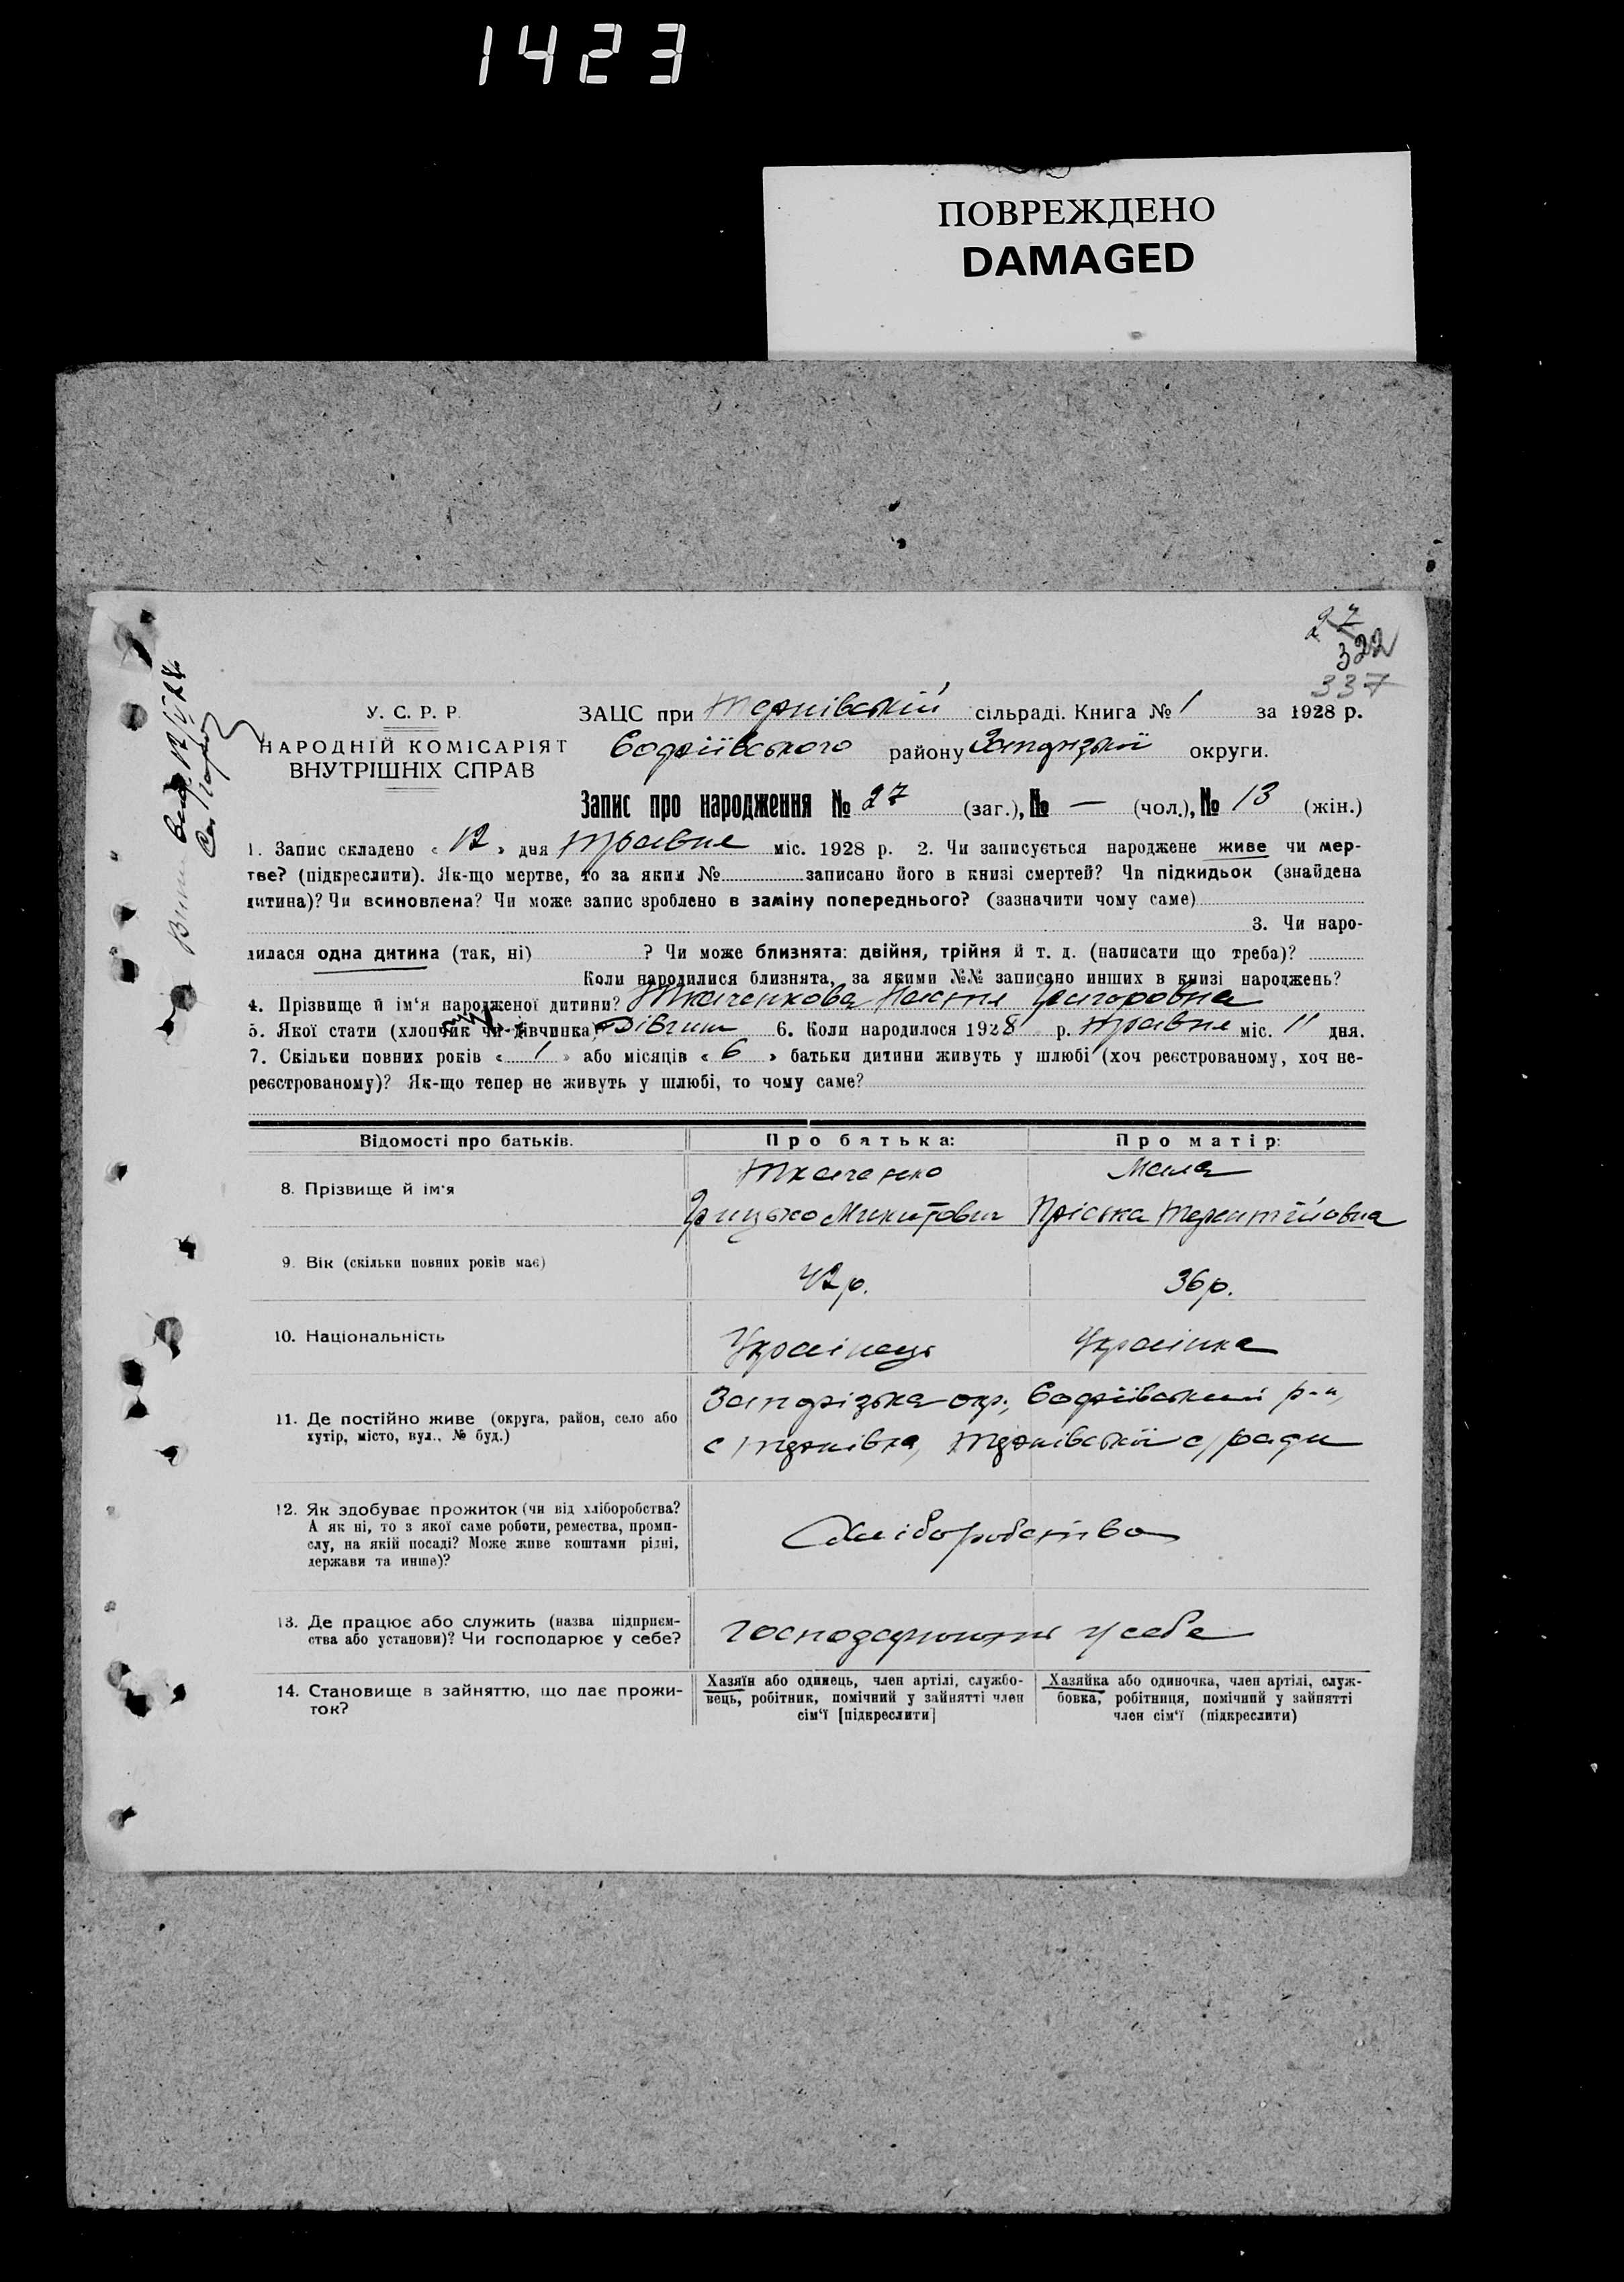 1423
ПОВРЕЖДЕНО
DAMAGED
27
322
337
У. С. Р. Р.
НАРОДНІЙ КОМІСАРІЯТ
ВНУТРІШНІХ СПРАВ
ЗАЦС при Тернівській сільраді. Книга № 1 за 1928 р.
Софіївського району Запорізької округи.
Запис про народження № 27 (заг.), № — (чол.), № 13 (жін.)
1. Запис складено « 12 » дня травня міс. 1928 р. 2. Чи записується народжене живе чи мер-
тве? (підкреслити). Як-що мертве, то за яким № записано його в книзі смертей? Чи підкидьок (знайдена
дитина)? Чи всиновлена? Чи може запис зроблено в заміну попереднього? (зазначити чому саме)
3. Чи наро-
дилася одна дитина (так, ні) ? Чи може близнята: двійня, трійня й т. д. (написати що треба)?
Коли народилися близнята, за якими №№ записано инших в книзі народжень?
4. Прізвище й ім'я народженої дитини? Ткаченкова Настя Григоровна
5. Якої стати (хлопчик чи дівчинка) Дівчин 6. Коли народилося 1928 р. травня міс. 11 дня.
7. Скільки повних років « 1 » або місяців « 6 » батьки дитини живуть у шлюбі (хоч реєстрованому, хоч не-
реєстрованому)? Як-що тепер не живуть у шлюбі, то чому саме?
Відомості про батьків. Про батька: Про матір:
8. Прізвище й ім'я Ткаченко
Грицько Микитович Пріська Терентійовна
9. Вік (скільки повних років має) 42 р. 36 р.
10. Національність Українець Українка
11. Де постійно живе (округа, район, село або
хутір, місто, вул., № буд.)
Запорізька окр., Софіївський р-н,
с Тернівка, Тернівської с/ради
12. Як здобуває прожиток (чи від хліборобства?
А як ні, то з якої саме роботи, ремества, проми-
слу, на якій посаді? Може живе коштами рідні,
держави та инше)?
Хліборобство
13. Де працює або служить (назва підприєм-
ства або установи)? Чи господарює у себе?
у себе
14. Становище в зайняттю, що дає прожи-
ток?
Хазяїн або одинець, член артілі, службо-
вець, робітник, помічний у зайнятті член
сім'ї [підкреслити]
Хазяйка або одиночка, член артілі, служ-
бовка, робітниця, помічний у зайнятті
член сім'ї (підкреслити)